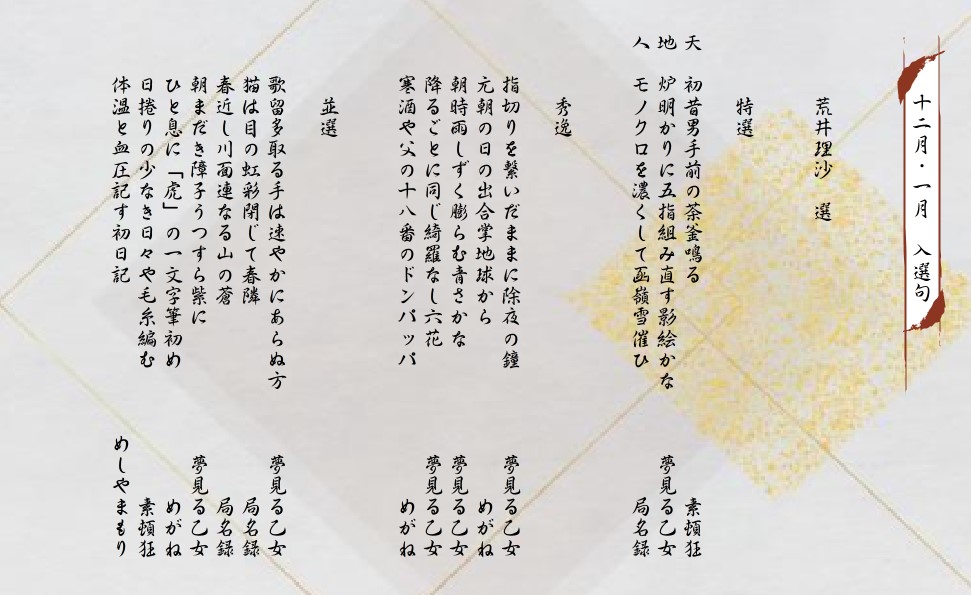 十二月・一月 入選句
荒井理沙 選
特選
天 初昔男手前の茶釜鳴る 素頓狂
地 炉明かりに五指組み直す影絵かな 夢見る乙女
人 モノクロを濃くして函嶺雪催ひ 局名録
秀逸
指切りを繋いだままに除夜の鐘 夢見る乙女
元朝の日の出合掌地球から めがね
朝時雨しずく膨らむ青さかな 夢見る乙女
降るごとに同じ綺羅なし六花 夢見る乙女
寒酒や父の十八番のドンパッパ めがね
並選
歌留多取る手は速やかにあらぬ方 夢見る乙女
猫は目の虹彩閉じて春隣 局名録
春近し川面連なる山の蒼 局名録
朝まだき障子うつすら紫に 夢見る乙女
ひと息に「虎」の一文字筆初め めがね
日捲りの少なき日々や毛糸編む 素頓狂
体温と血圧記す初日記 めしやまもり